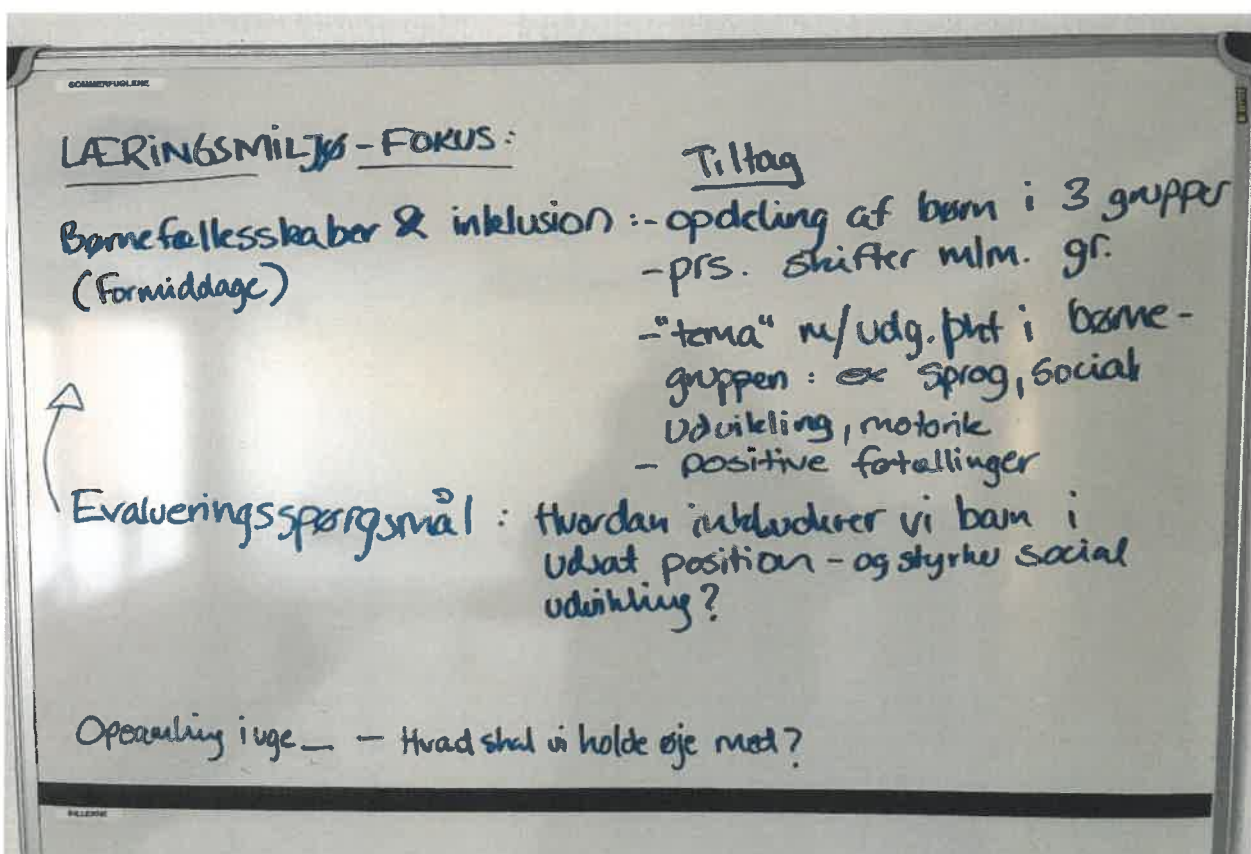 SOMMERFUGLENE
LÆRINGSMILJØ - FOKUS:
Tiltag
Børnefællesskaber & inklusion :- opdeling af børn i 3 grupper
(Formiddage)
- prs. skifter mlm. gr.
- "tema" m/udg.pkt i børne-
gruppen : ex sprog, social
udvikling, motorik
- positive fotællinger
Evalueringsspørgsmål : Hvordan inkluderer vi børn i
udsat position - og styrke social
udvikling?
Opsamling i uge _ - Hvad skal vi holde øje med?
BILLERNE